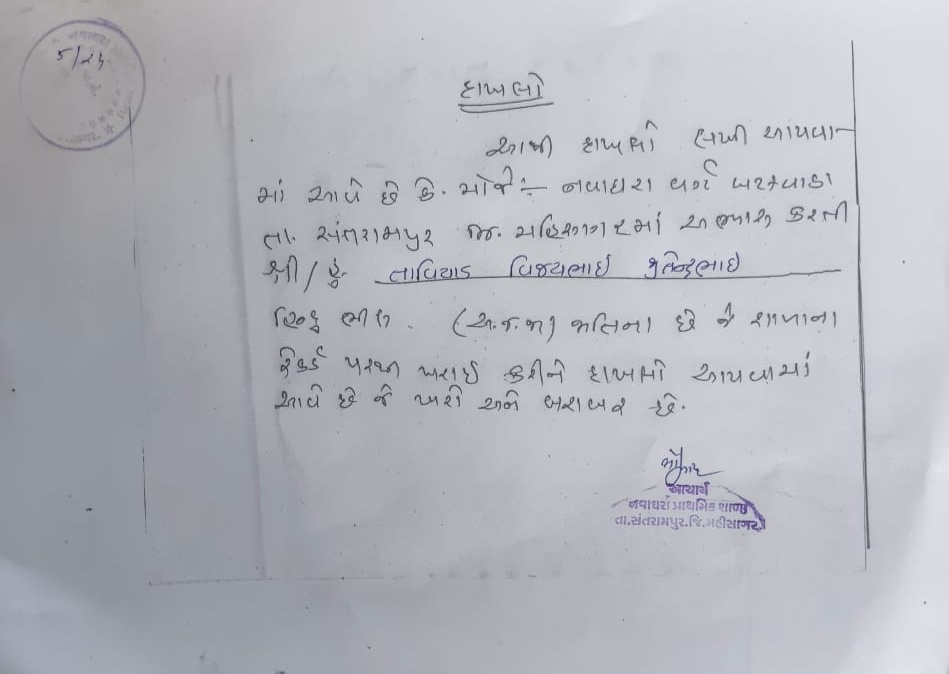 5/24
દાખલો
આથી દાખલો લખી આપવા-
માં આવે છે કે. મોજે:- નવાઘરા વર્ગ
તા. સંતરામપુર જિ. મહિસાગરમાં અભ્યાસ કરતી
શ્રી / કુ તાવિયાડ વિજયભાઇ જીતેન્દ્રભાઇ
હિન્દુ ભીલ. (અ.જ.જા) જાતિના છે જે શાળાના
રેકર્ડ પરથી ખરાઇ કરીને દાખલો આપવામાં
આવે છે જે ખરો અને બરાબર છે.
આચાર્ય
નવાઘરા પ્રાથમિક શાળા
તા.સંતરામપુર.જિ.મહીસાગર